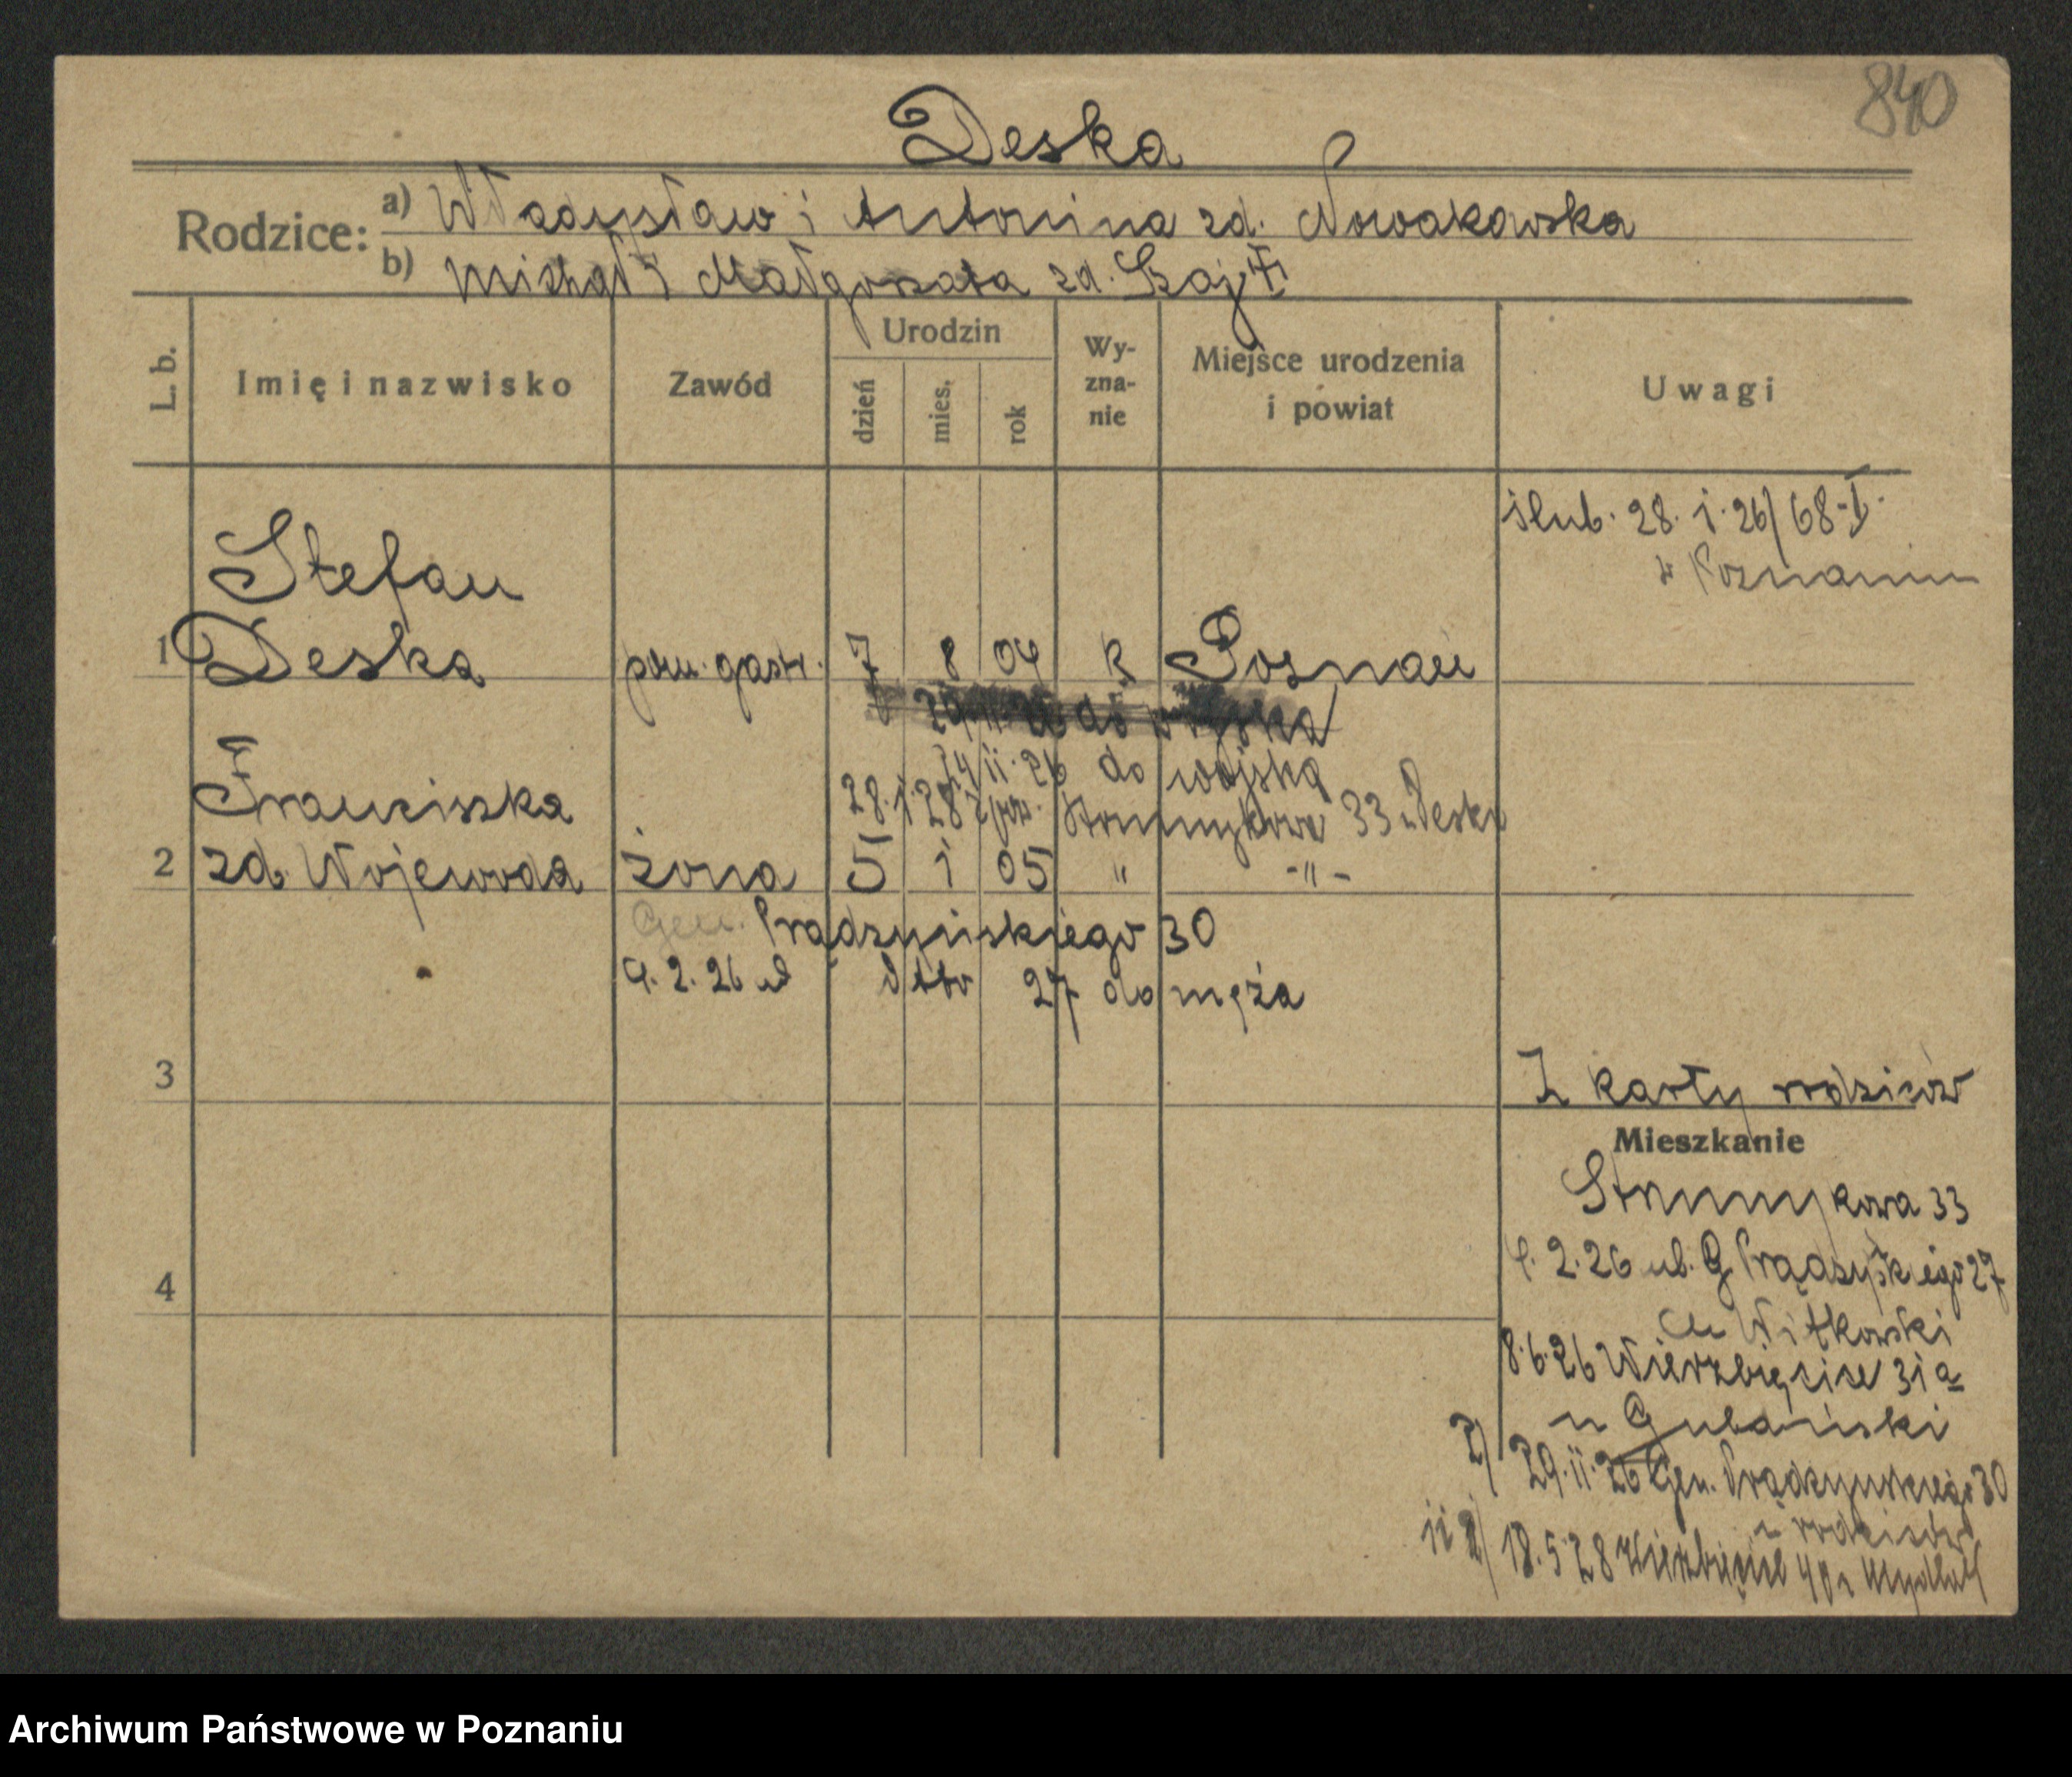 840
Deska
Rodzice: a) Władysław i Antonina zd. Nowakowska
b) Michał i Małgorzata zd. Szajft
L. b.
Imię i nazwisko
Zawód
Urodzin
dzień
mies.
rok
Wy-
zna-
nie
Miejsce urodzenia
i powiat
Uwagi
ślub. 28. i. 26/68-I.
w Poznaniu
Stefan
1 Deska pom. gastr. 7 8 04 R Poznań
29.ii.26 do wojska
ii. 26 do wojska
28. i 28 Strumykowa 33 u Deska
Franciszka
2 zd. Wojewoda żona 5 i 05 " -"-
Gen. Prądzyńskiego 30
9. 2. 26 27 do męża
3
Z karty rodziców
Mieszkanie
Strumykowa 33
9. 2. 26 ul. G. Prądzyńskiego 27
Witkowski
4
8.6.26 Wierzbięcice 31a
u Gubański
2) 29.ii.26 Gen. Prądzyńskiego 30
u rodziców
ii 2) 18.5.28 Wierzbięcice 40 u
Archiwum Państwowe w Poznaniu